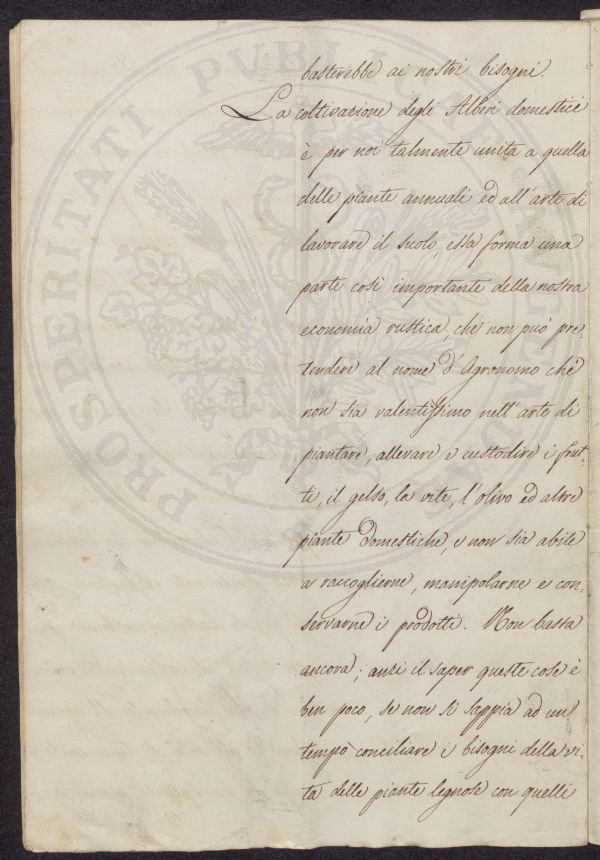 basterebbe ai nostri bisogni.
La coltivazione degli Alberi domestici
è per noi talmente unita a quella
delle piante annuali ed all'arte di
lavorare il suolo, essa forma una
parte così importante della nostra
economia rustica, che non può pre-
tendere al nome d'Agronomo chi
non sia valentissimo nell'arte di
piantare, allevare e custodire i frut-
ti, il gelso, la vite, l'olivo ed altre
piante domestiche, e non sia abile
a raccoglierne, manipolarne e con-
servarne i prodotti. Non basta
ancora; anzi il saper queste cose è
ben poco, se non si sappia ad un
tempo conciliare i bisogni della vi-
ta delle piante legnose con quelli
PROSPERITATI PUBLICAE